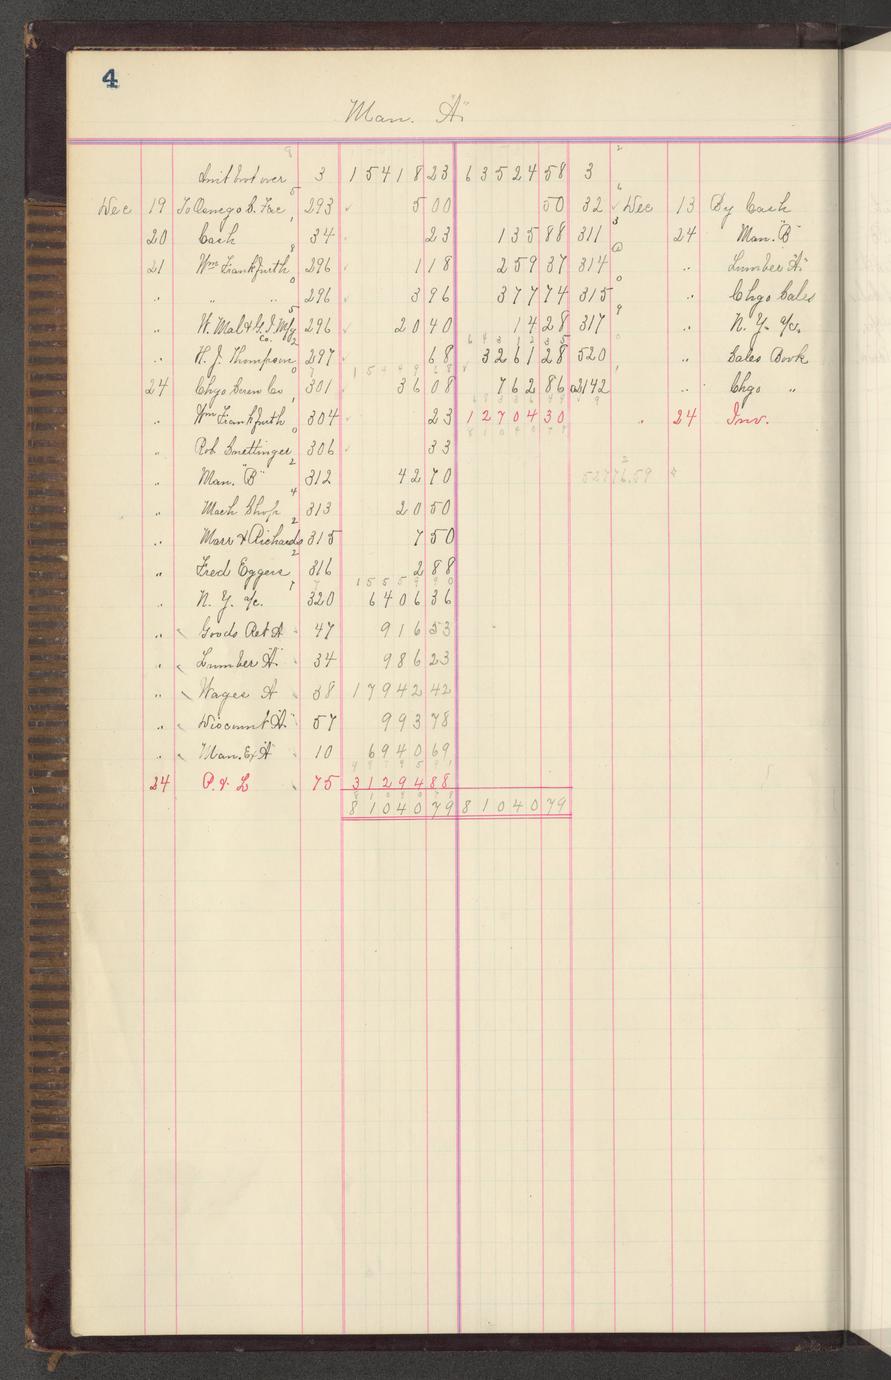 4
Man. "A"
Amt brot over 3 15418 23 63524 58 3
Dec 19 To Oswego S. Fac 293 5 00 50 32 Dec 13 By Cash
20 Cash 34 23 135 88 311 24 Man. "B"
21 Wm Frankfurth 296 1 18 259 37 314 " Lumber "A"
" " " 296 3 96 377 74 315 " Chgo Sales
" W. Mal & G. I. Mfg Co. 296 20 40 14 28 317 " N. Y. a/c.
" H. J. Thompson 297 68 3261 28 520 " Sales Book
24 Chgo Screw Co 301 36 08 762 86 142 " Chgo "
" Wm Frankfurth 304 23 12704 30 " 24 Inv.
" Rob 306 33
" Man. "B" 312 42 70 52776.59
" Mach Shop 313 20 50
" Marr & Richards 315 7 50
" Fred Eggers 316 2 88
15559 90
" N. Y. a/c. 320 6406 36
" Goods Ret A 47 916 53
" Lumber "A" 34 986 23
" Wages A 38 17942 42
" Discount "A" 57 993 78
" Man. Ex "A" 10 6940 69
24 P. & L 75 31294 88
81040 79 81040 79